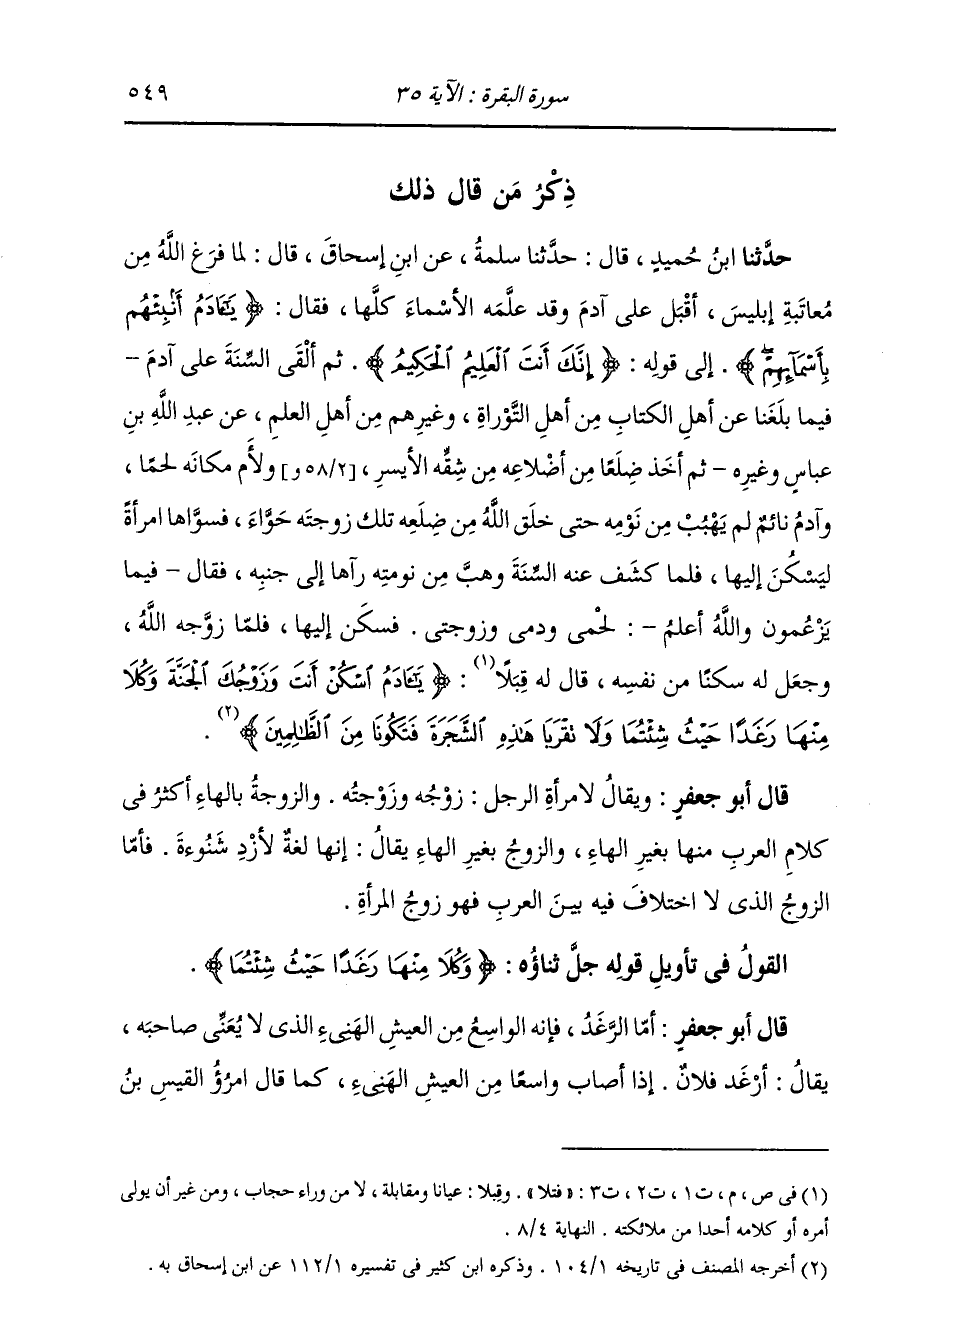 سورة البقرة : الآية ٣٥ ٥٤٩
ذِكْرُ مَن قال ذلك
حدَّثنا ابنُ حُميدٍ ، قال : حدَّثنا سلمةُ ، عن ابنِ إسحاقَ ، قال : لما فرَغ اللَّهُ مِن
مُعاتَبةِ إبليسَ ، أقْبَل على آدمَ وقد علَّمه الأسْماءَ كلَّها ، فقال : ﴿ يَٰٓـَٔادَمُ أَنۢبِئْهُم
بِأَسْمَآئِهِمْۖ ﴾ . إلى قولِه : ﴿ إِنَّكَ أَنتَ ٱلْعَلِيمُ ٱلْحَكِيمُ ﴾ . ثم ألْقَى السِّنَةَ على آدمَ -
فيما بلَغَنا عن أهلِ الكتابِ مِن أهلِ التَّوْراةِ ، وغيرِهم مِن أهلِ العلمِ ، عن عبدِ اللَّهِ بنِ
عباسٍ وغيرِه - ثم أخَذ ضِلَعًا مِن أضْلاعِه مِن شِقِّه الأيسرِ ، [٥٨/٢و] ولَأَم مكانَه لحمًا ،
وآدمُ نائمٌ لم يَهْبُبْ مِن نَوْمِه حتى خلَق اللَّهُ مِن ضِلَعِه تلك زوجتَه حَوَّاءَ ، فسوَّاها امرأةً
ليَسْكُنَ إليها ، فلما كشَف عنه السِّنَةَ وهبَّ مِن نومتِه رآها إلى جنبِه ، فقال - فيما
يَزْعُمون واللَّهُ أعلمُ - : لحْمى ودمى وزوجتى . فسكَن إليها ، فلمّا زوَّجه اللَّهُ ،
وجعَل له سكنًا من نفسِه ، قال له قِبَلًا(١) : ﴿ يَٰٓـَٔادَمُ ٱسْكُنْ أَنتَ وَزَوْجُكَ ٱلْجَنَّةَ وَكُلَا
مِنْهَا رَغَدًا حَيْثُ شِئْتُمَا وَلَا تَقْرَبَا هَٰذِهِ ٱلشَّجَرَةَ فَتَكُونَا مِنَ ٱلظَّٰلِمِينَ ﴾(٢) .
قال أبو جعفرٍ : ويقالُ لامرأةِ الرجلِ : زوْجُه وزَوْجتُه . والزوجةُ بالهاءِ أكثرُ فى
كلامِ العربِ منها بغيرِ الهاءِ ، والزوجُ بغيرِ الهاءِ يقالُ : إنها لغةٌ لأزْدِ شَنُوءةَ . فأمّا
الزوجُ الذى لا اختلافَ فيه بينَ العربِ فهو زوجُ المرأةِ .
القولُ فى تأويلِ قولِه جلَّ ثناؤُه : ﴿ وَكُلَا مِنْهَا رَغَدًا حَيْثُ شِئْتُمَا ﴾ .
قال أبو جعفرٍ : أمّا الرَّغَدُ ، فإنه الواسِعُ مِن العيشِ الهَنِىءِ الذى لا يُعَنِّى صاحبَه ،
يقالُ : أرْغَد فلانٌ . إذا أصاب واسعًا مِن العيشِ الهَنِىءِ ، كما قال امرُؤُ القيسِ بنُ
(١) فى ص ، م ، ت١ ، ت٢ ، ت٣ : « فتلا » . وقِبلا : عيانا ومقابلة ، لا من وراء حجاب ، ومن غير أن يولى
أمره أو كلامه أحدا من ملائكته . النهاية ٨/٤ .
(٢) أخرجه المصنف فى تاريخه ١٠٤/١ . وذكره ابن كثير فى تفسيره ١١٢/١ عن ابن إسحاق به .